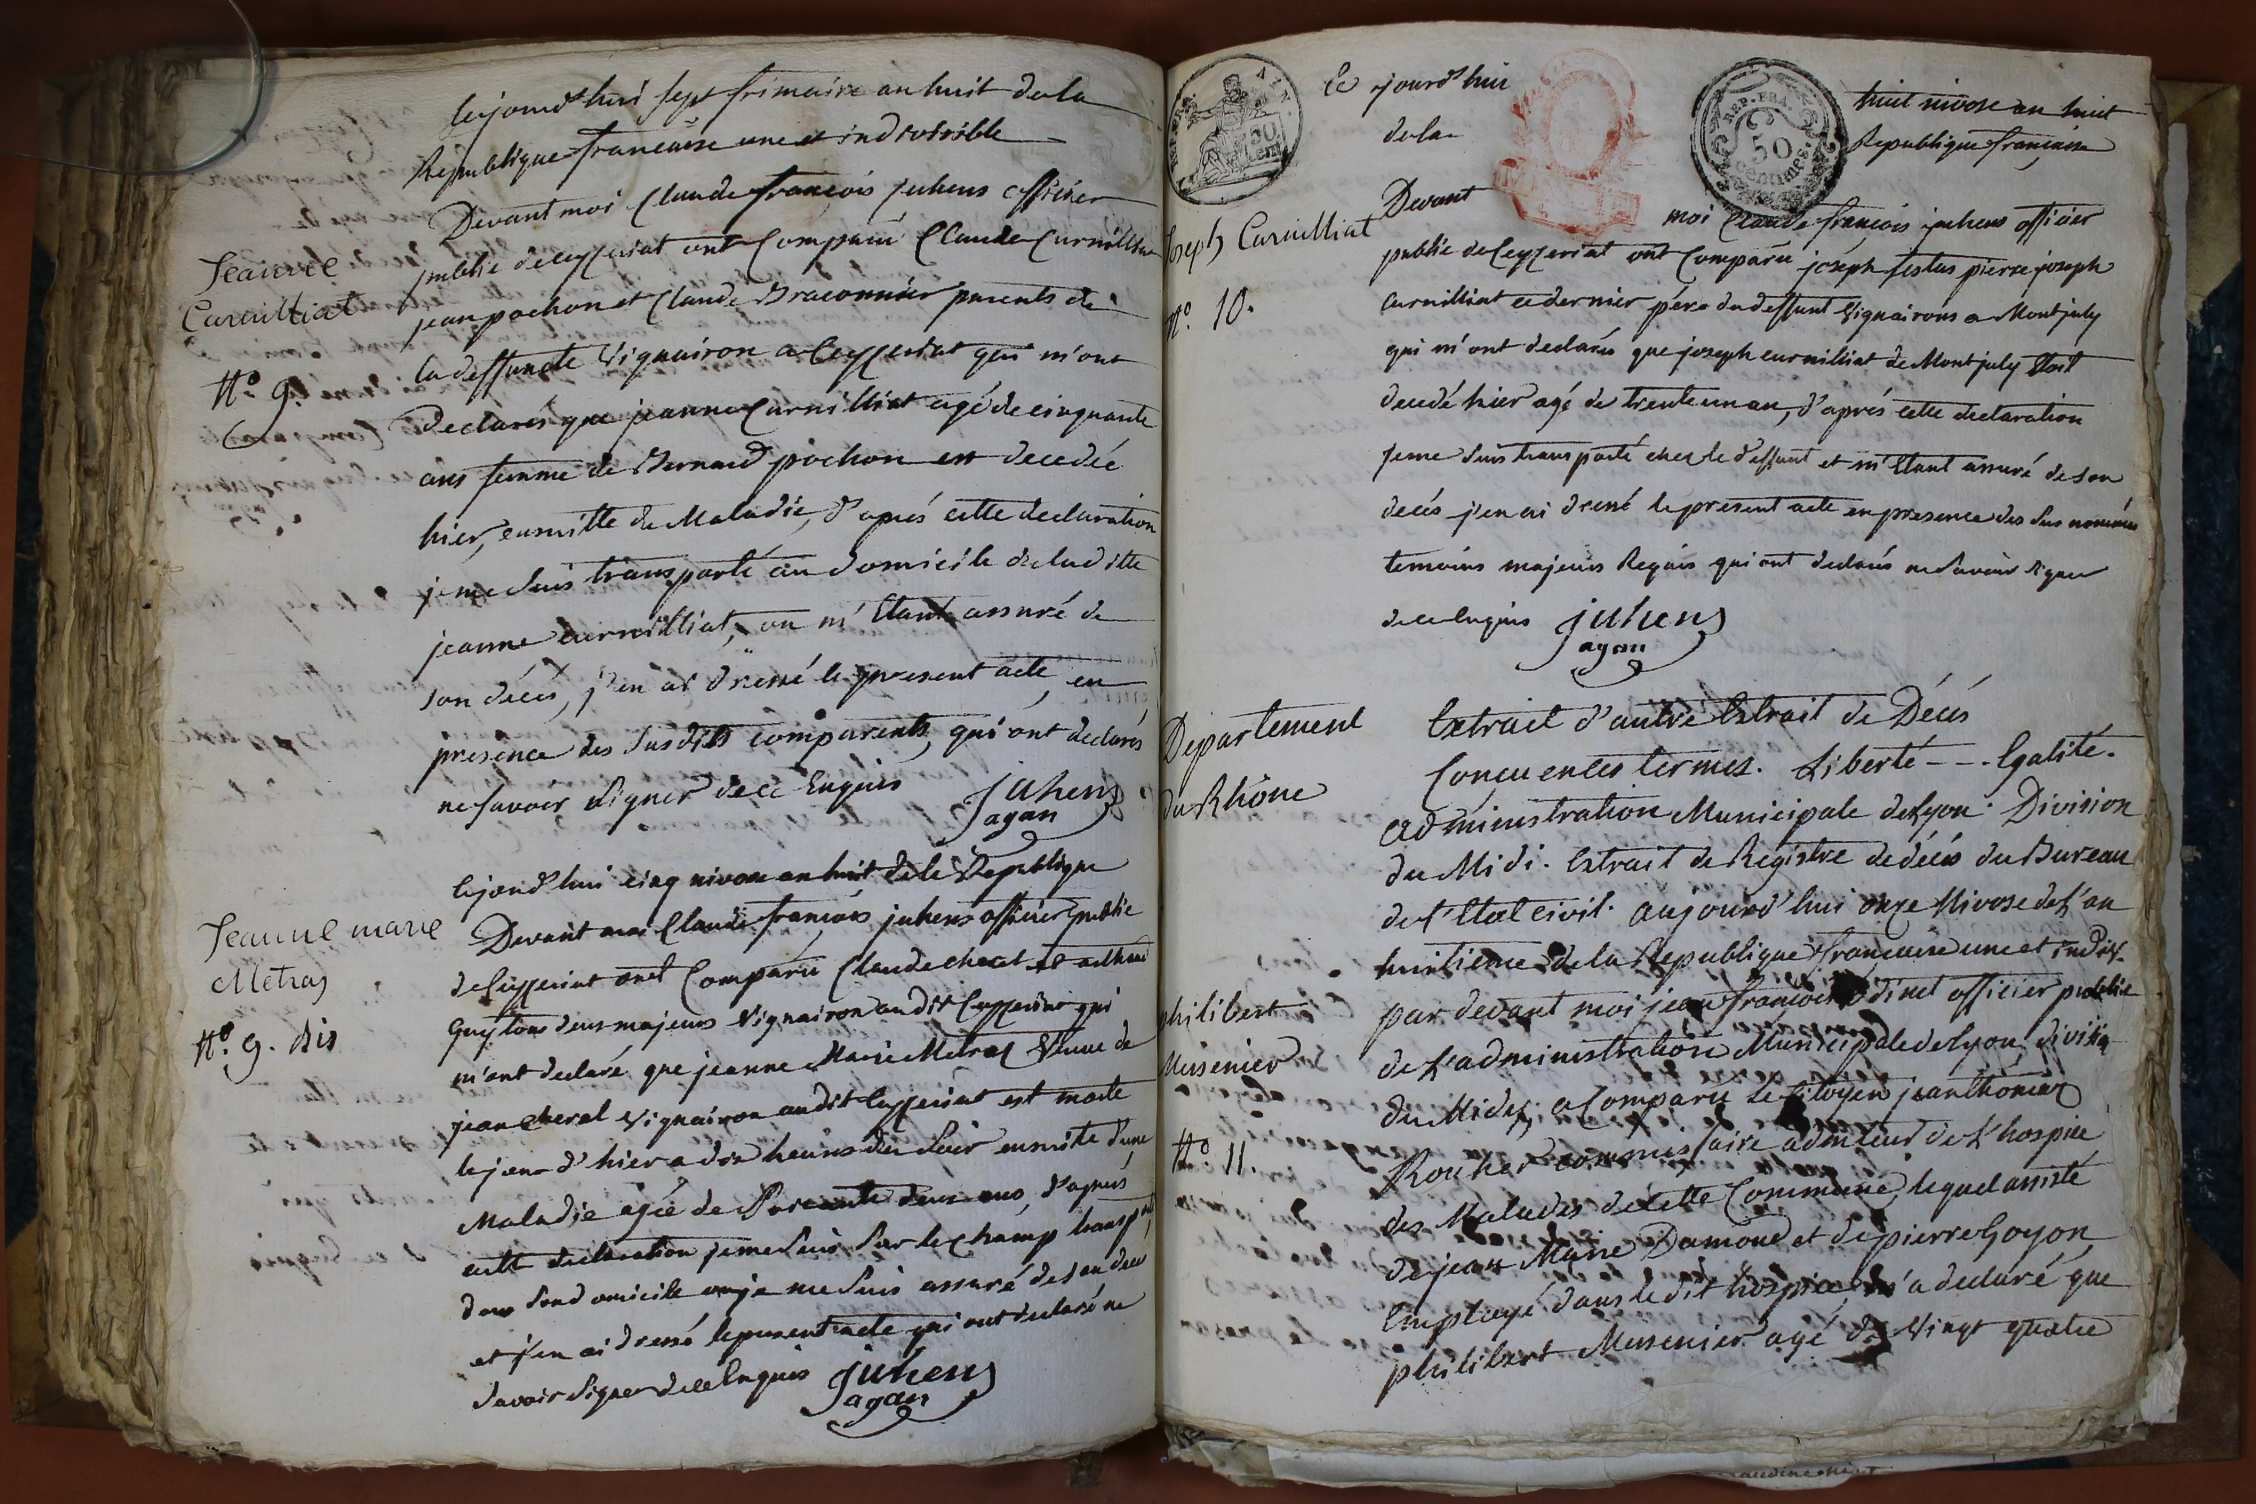 Cejourd'hui sept frimaire an huit de la
Republique francaise une et indivisible
Devant moi Claude françois juhens officier
public de ceyzeriat ont Comparu Claude Curnilliat
jean pochon et Claude Braconnier parents de
la deffuncte Vignairon a Ceyzeriat qui m'ont
Declarés que jeanne Curnilliat agé de cinquante
ans femme de Bernard pochon est decedée
hier, ensuitte de Maladie, d'aprés cette declaration
je me suis transporté au domicile de laditte
jeanne curnilliat, ou m'Etant assuré de
son décés, j'en ai dressé le present acte, en
presence des susdits comparents, qui ont declarés
ne savoir signer de ce Enquis juhens
agan
Jeanne
Curnilliat
N.º 9.
Cejourd'hui cinq nivose an huit de la Republique
Devant moi Claude françois juhens officier public
de Ceyzeriat ont Comparu Claude cheral et
Guy tous deux majeurs Vignairon audit Ceyzeriat qui
m'ont declaré que jeanne Marie Metras Veuve de
jean Cheral Vignairon audit Ceyzeriat est morte
le jour d'hier a dix heures du soir ensuite d'une
Maladie agée de Soixante deux ans, d'aprés
cette declaration je me suis sur le champ transporté
dans son domicile ou je me suis assuré de son deces
et j'en ai dressé le present acte qui ont declaré ne
savoir signer de ce Enquis juhens
agan
Jeanne marie
Metras
N.º 9. bis
Ce jourd'hui huit nivose an huit
de la Republique française
Devant moi Claude françois juhens officier
public de Ceyzeriat ont Comparu joséph festas pierre joseph
Curnilliat ce dernier pére du deffunt Vignairons a Montjuly
qui m'ont declarés que joseph curnilliat de Montjuly Etoit
decedé hier agé de trente un an, d'aprés cette declaration
je me suis transporté chez le deffunt et m'Etant assuré de son
decés j'en ai dressé le present acte en presence des sus nommés
temoins majeurs Requis qui ont declarés ne savoir signer
de ce Enquis juhens
agan
Joseph Curnilliat
N.º 10.
REP. FRA.
50
CENTIMES
Extrait d'autre Extrait de Décés
Conçu en ces termes. Liberté --- Egalité.
administration Municipale de Lyon. Division
du Midi. Extrait de Registre de décés du Bureau
de l'Etat civil. aujourd'hui onze Nivose de l'an
huitieme de la Republique française une et indiv.
par devant moi jean françois Odinet officier public
de l'administration Municipale de Lyon, division
du Midy, a Comparu le Citoyen jean thomas
Rocher commissaire adminteur de l'hospice
des Malades de cette Commune, lequel assisté
de jean Marie Damond et de pierre Goyon,
Employé dans le dit hospice, m'a declaré que
philibert Musenier agé de Vingt quatre
Departement
du Rhône
philibert
Musenier
N.º 11.